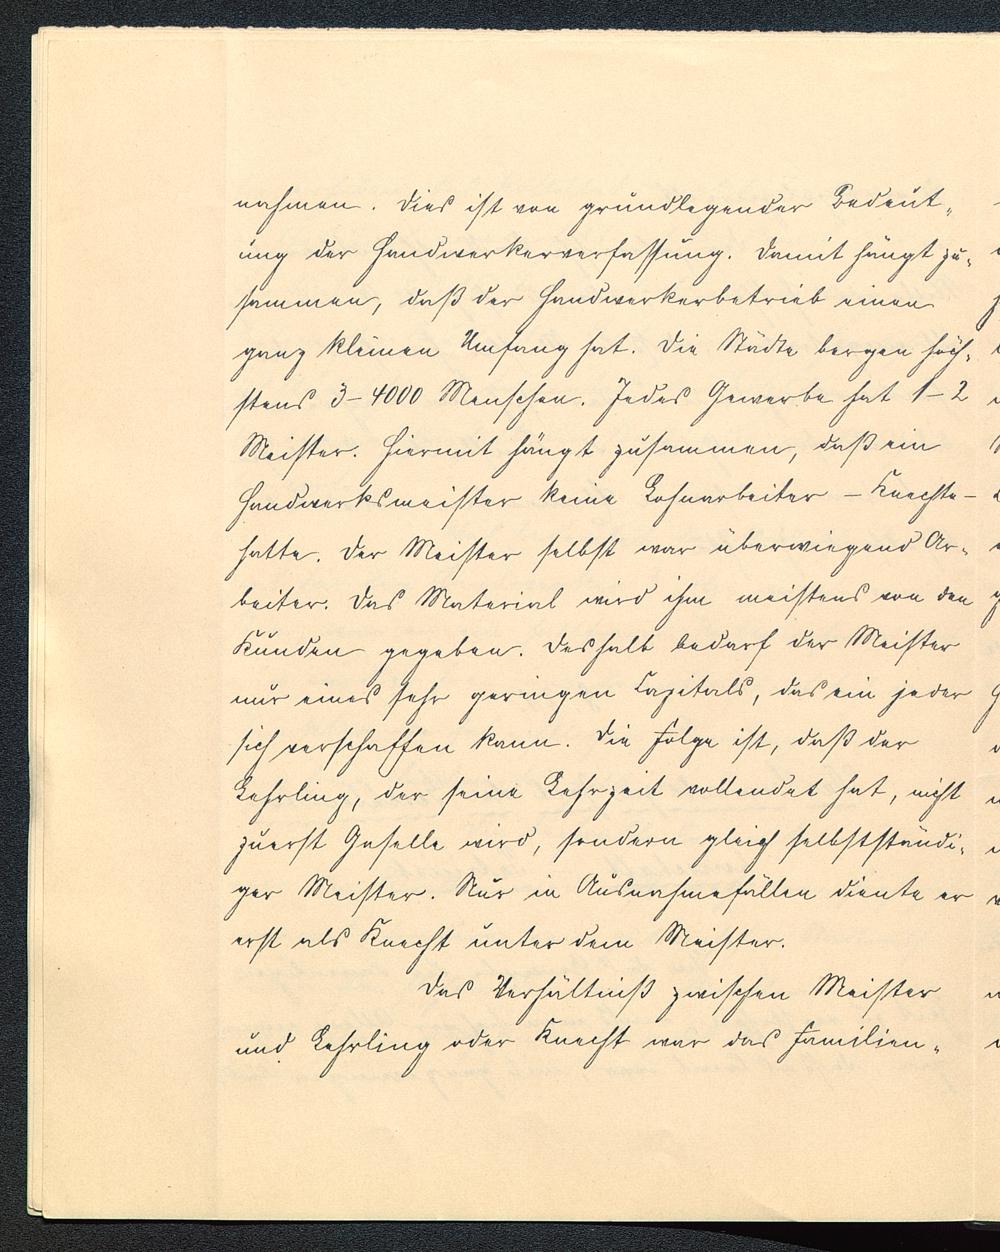 nahmen. Dies ist von grundlegender Bedeut-
ung der Handwerkerverfassung. Damit hängt zu-
sammen, daß der Handwerkerbetrieb einen
ganz kleinen Umfang hat. Die Städte bergen höch-
stens 3–4000 Menschen. Jedes Gewerbe hat 1–2
Meister. Hiermit hängt zusammen, daß ein
Handwerksmeister keine Lohnarbeiter – Knechte –
hatte. Der Meister selbst war überwiegend Ar-
beiter. Das Material wird ihm meistens von den
Kunden gegeben. Deshalb bedarf der Meister
nur eines sehr geringen Capitals, das ein jeder
sich verschaffen kann. Die Folge ist, daß der
Lehrling, der seine Lehrzeit vollendet hat, nicht
zuerst Geselle wird, sondern gleich selbstständi-
ger Meister. Nur in Ausnahmefällen diente er
erst als Knecht unter dem Meister.
Das Verhältniß zwischen Meister
und Lehrling oder Knecht war das Familien-